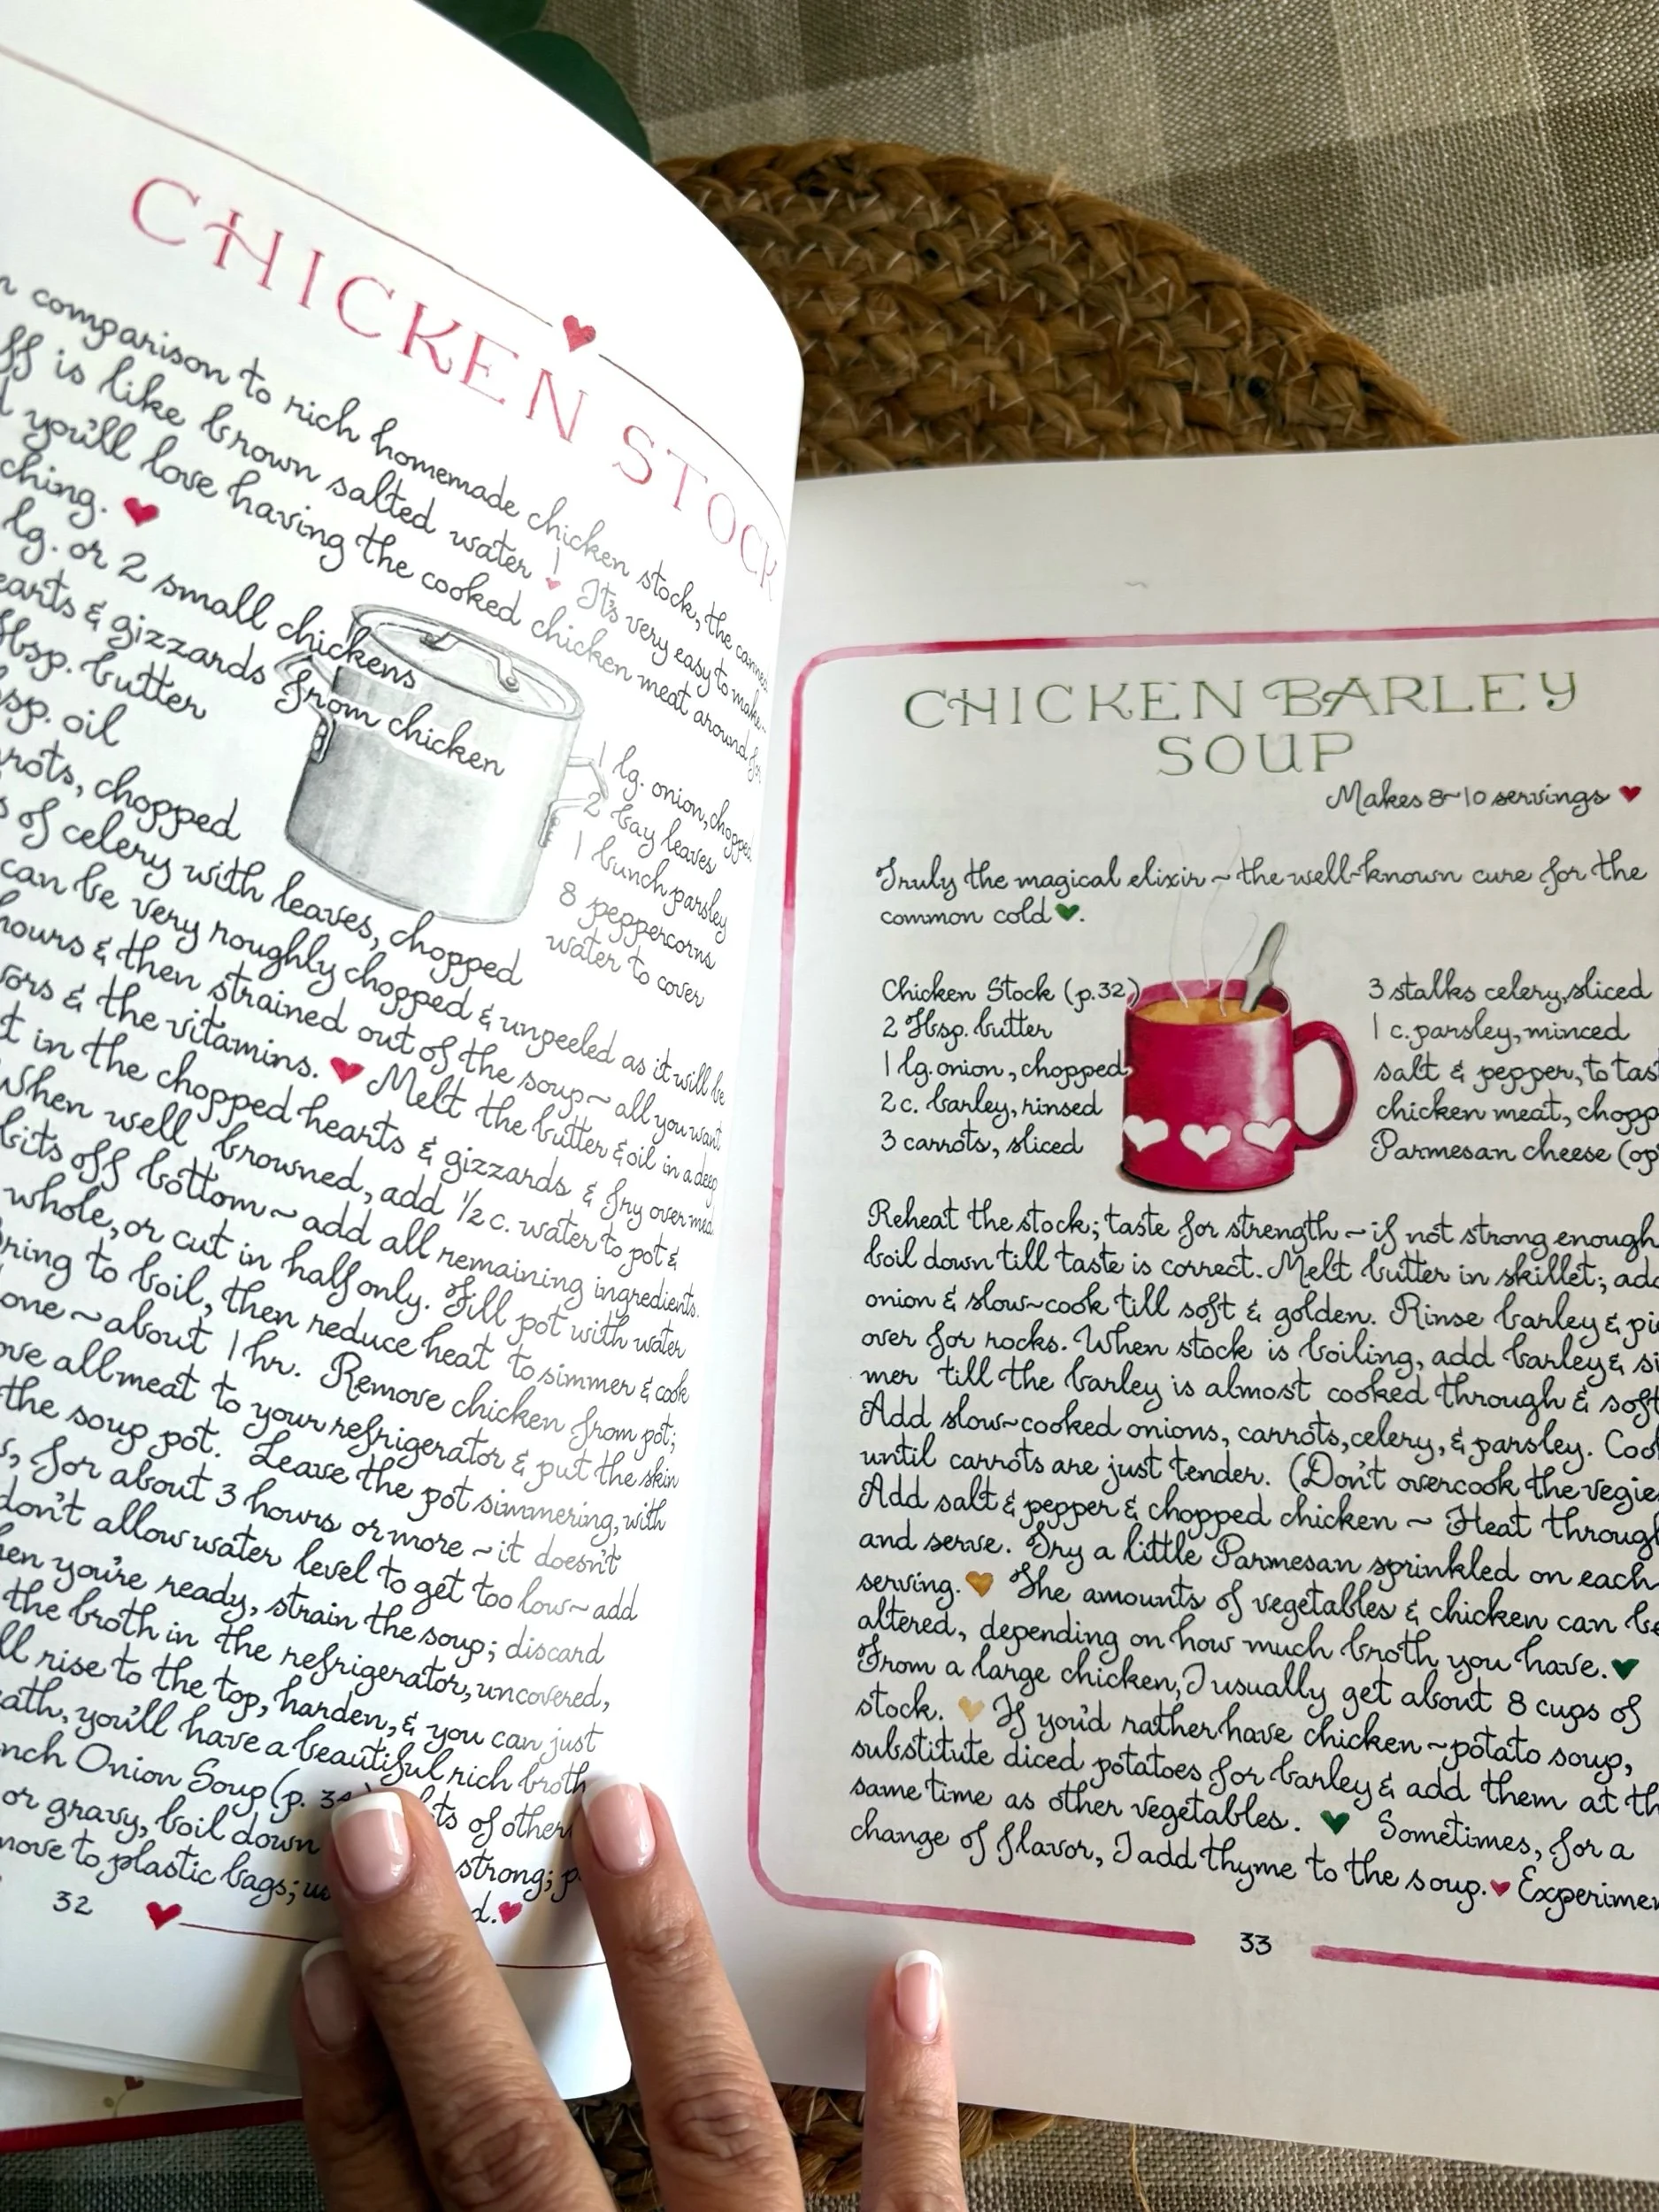 CHICKEN STOCK
comparison to rich homemade chicken stock, the canned
is like brown salted water! It's very easy to make~
you'll love having the cooked chicken meat around for
ching.
lg. or 2 small chickens
earts & gizzards from chicken
tbsp. butter
bsp. oil
rrots, chopped
of celery with leaves, chopped
1 lg. onion, chopped
2 bay leaves
1 bunch parsley
8 peppercorns
water to cover
can be very roughly chopped & unpeeled as it will be
hours & then strained out of the soup~ all you want
vors & the vitamins. Melt the butter & oil in a deep
t in the chopped hearts & gizzards & fry over med.
When well browned, add 1/2 c. water to pot &
bits off bottom~ add all remaining ingredients.
whole, or cut in half only. Fill pot with water
Bring to boil, then reduce heat to simmer & cook
one ~ about 1 hr. Remove chicken from pot;
ove all meat to your refrigerator & put the skin
the soup pot. Leave the pot simmering, with
s, for about 3 hours or more ~ it doesn't
don't allow water level to get too low~ add
hen you're ready, strain the soup; discard
the broth in the refrigerator, uncovered,
ll rise to the top, harden, & you can just
eath, you'll have a beautiful rich broth
nch Onion Soup (p. ts of other
or gravy, boil down strong; p
move to plastic bags; d.
32
CHICKEN BARLEY
SOUP
Makes 8~10 servings
Truly the magical elixir ~ the well-known cure for the
common cold.
Chicken Stock (p.32)
2 Tbsp. butter
1 lg. onion, chopped
2 c. barley, rinsed
3 carrots, sliced
3 stalks celery, sliced
1 c. parsley, minced
salt & pepper, to tas
chicken meat, chopp
Parmesan cheese (op
Reheat the stock; taste for strength ~ if not strong enough
boil down till taste is correct. Melt butter in skillet; add
onion & slow~cook till soft & golden. Rinse barley & pi
over for rocks. When stock is boiling, add barley & si
mer till the barley is almost cooked through & soft
Add slow~cooked onions, carrots, celery, & parsley. Coo
until carrots are just tender. (Don't overcook the vegie
Add salt & pepper & chopped chicken ~ Heat through
and serve. Try a little Parmesan sprinkled on each
serving. The amounts of vegetables & chicken can be
altered, depending on how much broth you have.
From a large chicken, I usually get about 8 cups of
stock. If you'd rather have chicken~potato soup,
substitute diced potatoes for barley & add them at th
same time as other vegetables. Sometimes, for a
change of flavor, I add thyme to the soup. Experimen
33